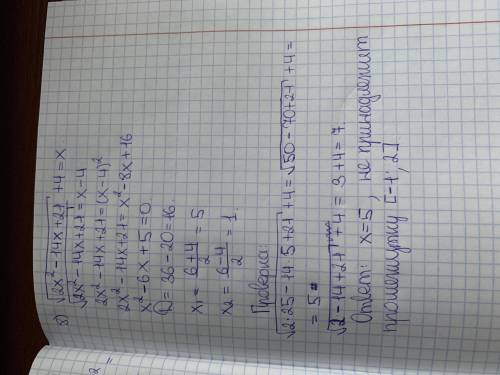 8) √2x²-14x+21 +4=x
√2x²-14x+21 = x-4
2x²-14x+21=(x-4)²
2x²-14x+21=x²-8x+16
x²-6x+5=0
D=36-20=16.
x₁=(6+4)/2=5
x₂=(6-4)/2=1.
Проверка:
√2·25-14·5+21 +4=√50-70+21 +4=
=5
√2-14+21 +4=3+4=7.
Ответ: x=5, не принадлежит
промежутку [-1, 2]
2 =